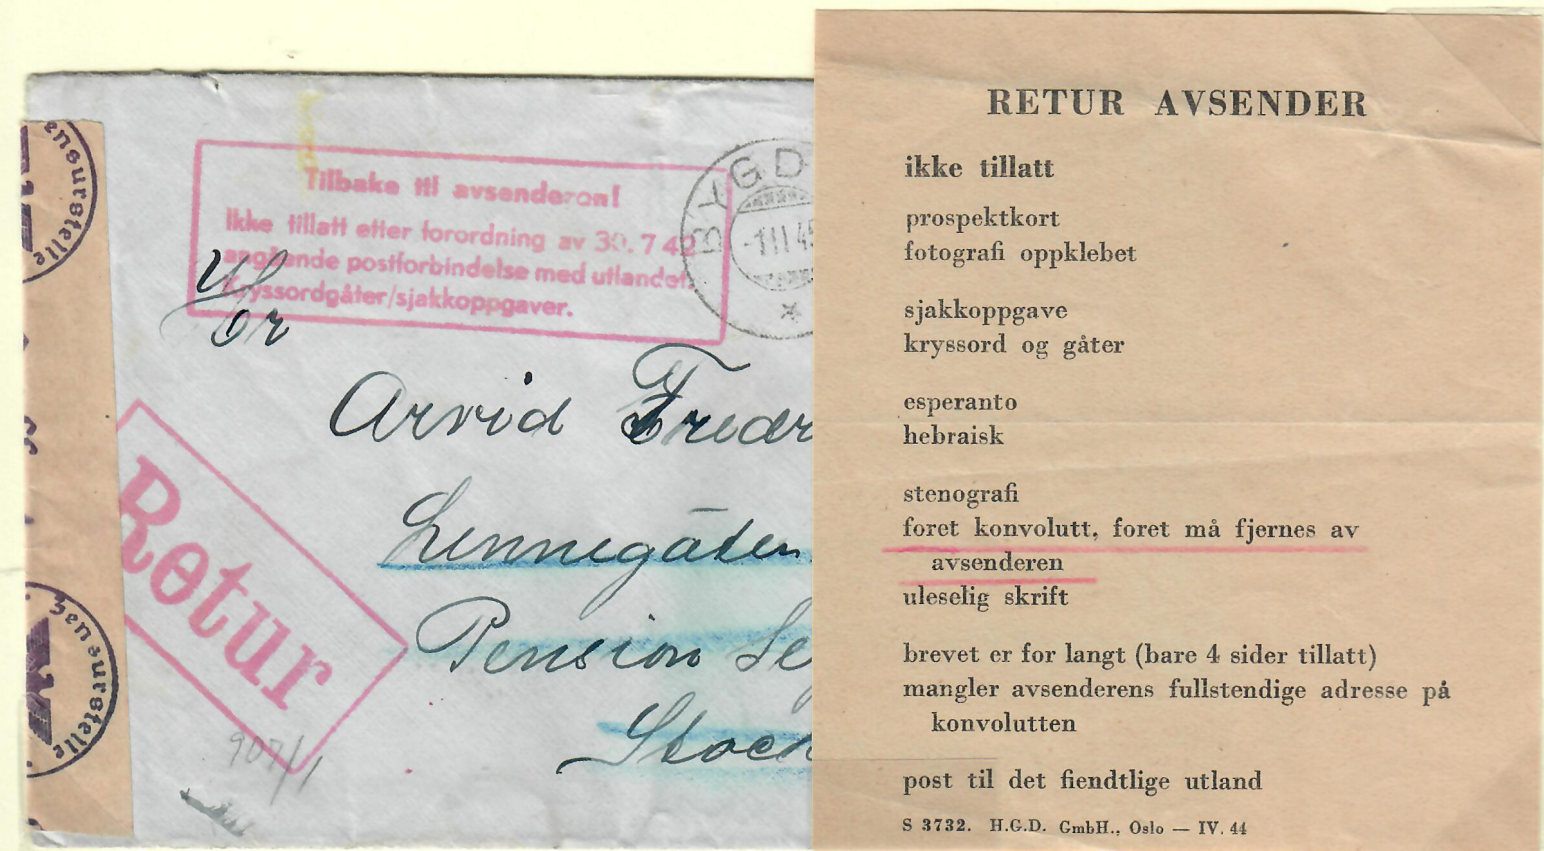 Tilbake til avsenderen!
Ikke tillatt etter forordning av 30.7 42
angående postforbindelse med utlandet.
Kryssordgåter/sjakkoppgaver.
BYGD
Hr
Arvid Fredr
Linnegåten
Pension Se
Stock
Retur
907/1
Zensurstelle
Zensurstelle
RETUR AVSENDER
ikke tillatt
prospektkort
fotografi oppklebet
sjakkoppgave
kryssord og gåter
esperanto
hebraisk
stenografi
foret konvolutt, foret må fjernes av
avsenderen
uleselig skrift
brevet er for langt (bare 4 sider tillatt)
mangler avsenderens fullstendige adresse på
konvolutten
post til det fiendtlige utland
S 3732. H.G.D. GmbH., Oslo — IV. 44